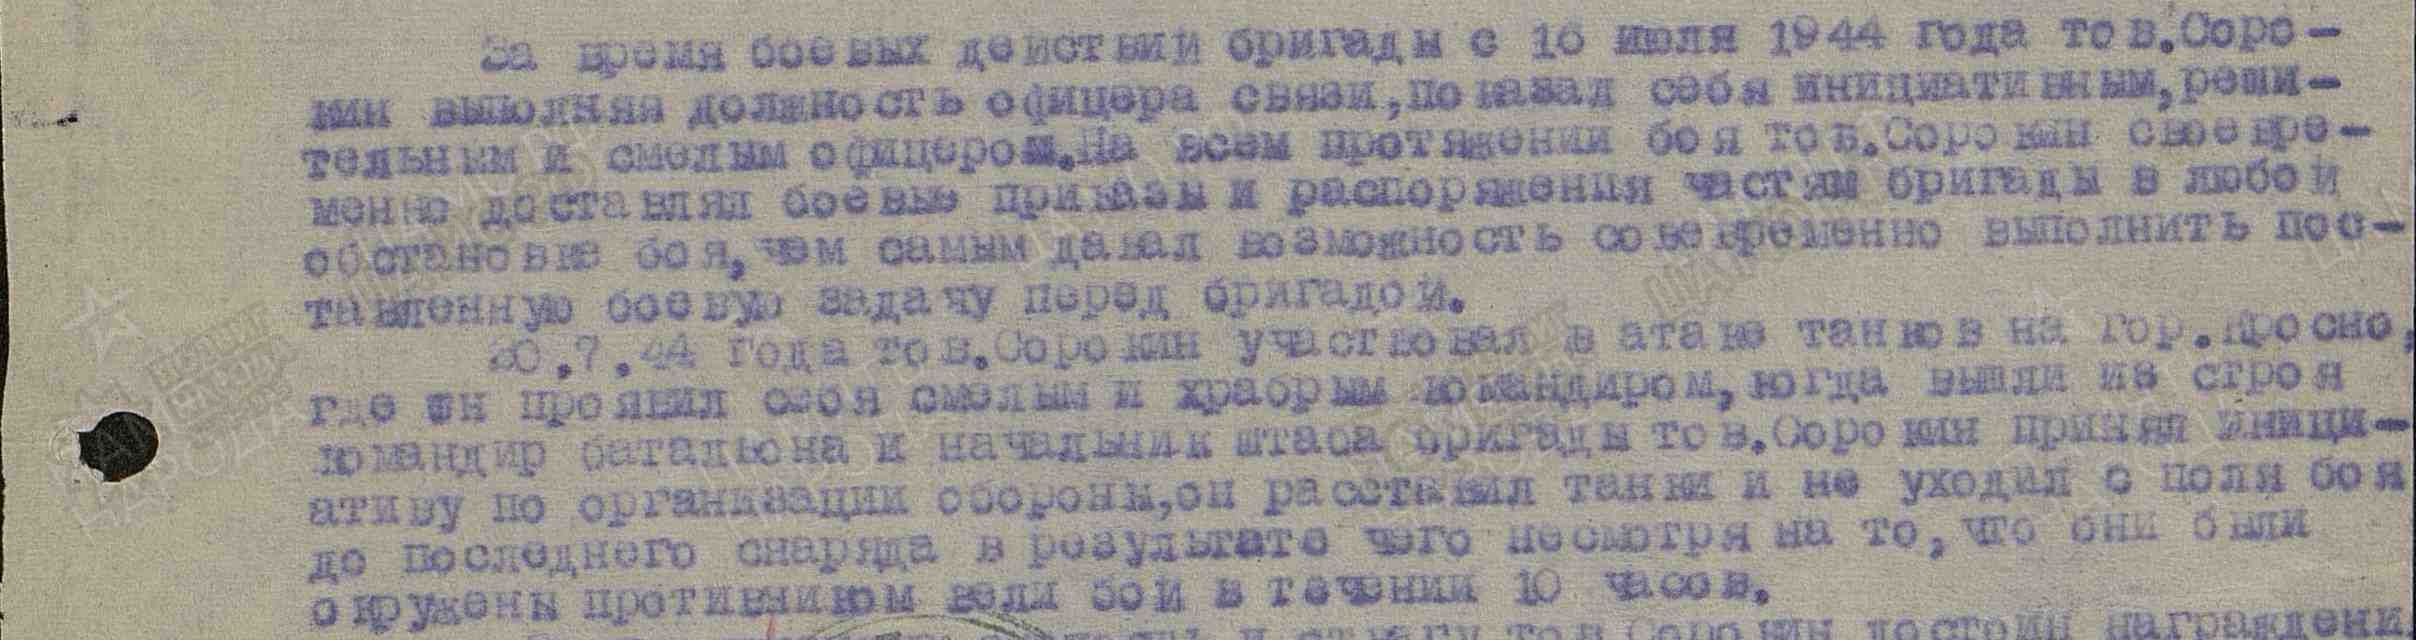 За время боевых действий бригады с 16 июля 1944 года тов.Соро-
кин выполняя должность офицера связи,показал себя инициативным,реши-
тельным и смелым офицером.На всем протяжении боя тов.Сорокин своевре-
менно доставлял боевые приказы и распоряжения частям бригады в любой
обстановке боя,чем самым давал возможность совевременно выполнить пос-
тавленную боевую задачу перед бригадой.
20.7.44 года тов.Сорокин участвовал в атаке танков на гор.Кросно,
где он проявил себя смелым и храбрым командиром,когда вышли из строя
командир батальона и начальник штаба бригады тов.Сорокин принял иници-
ативу по организации обороны,он расставил танки и не уходил с поля боя
до последнего снаряда в результате чего несмотря на то,что они были
окружены противником вели бой в течении 10 часов.
и отвагу тов.Сорокин достоин награждени